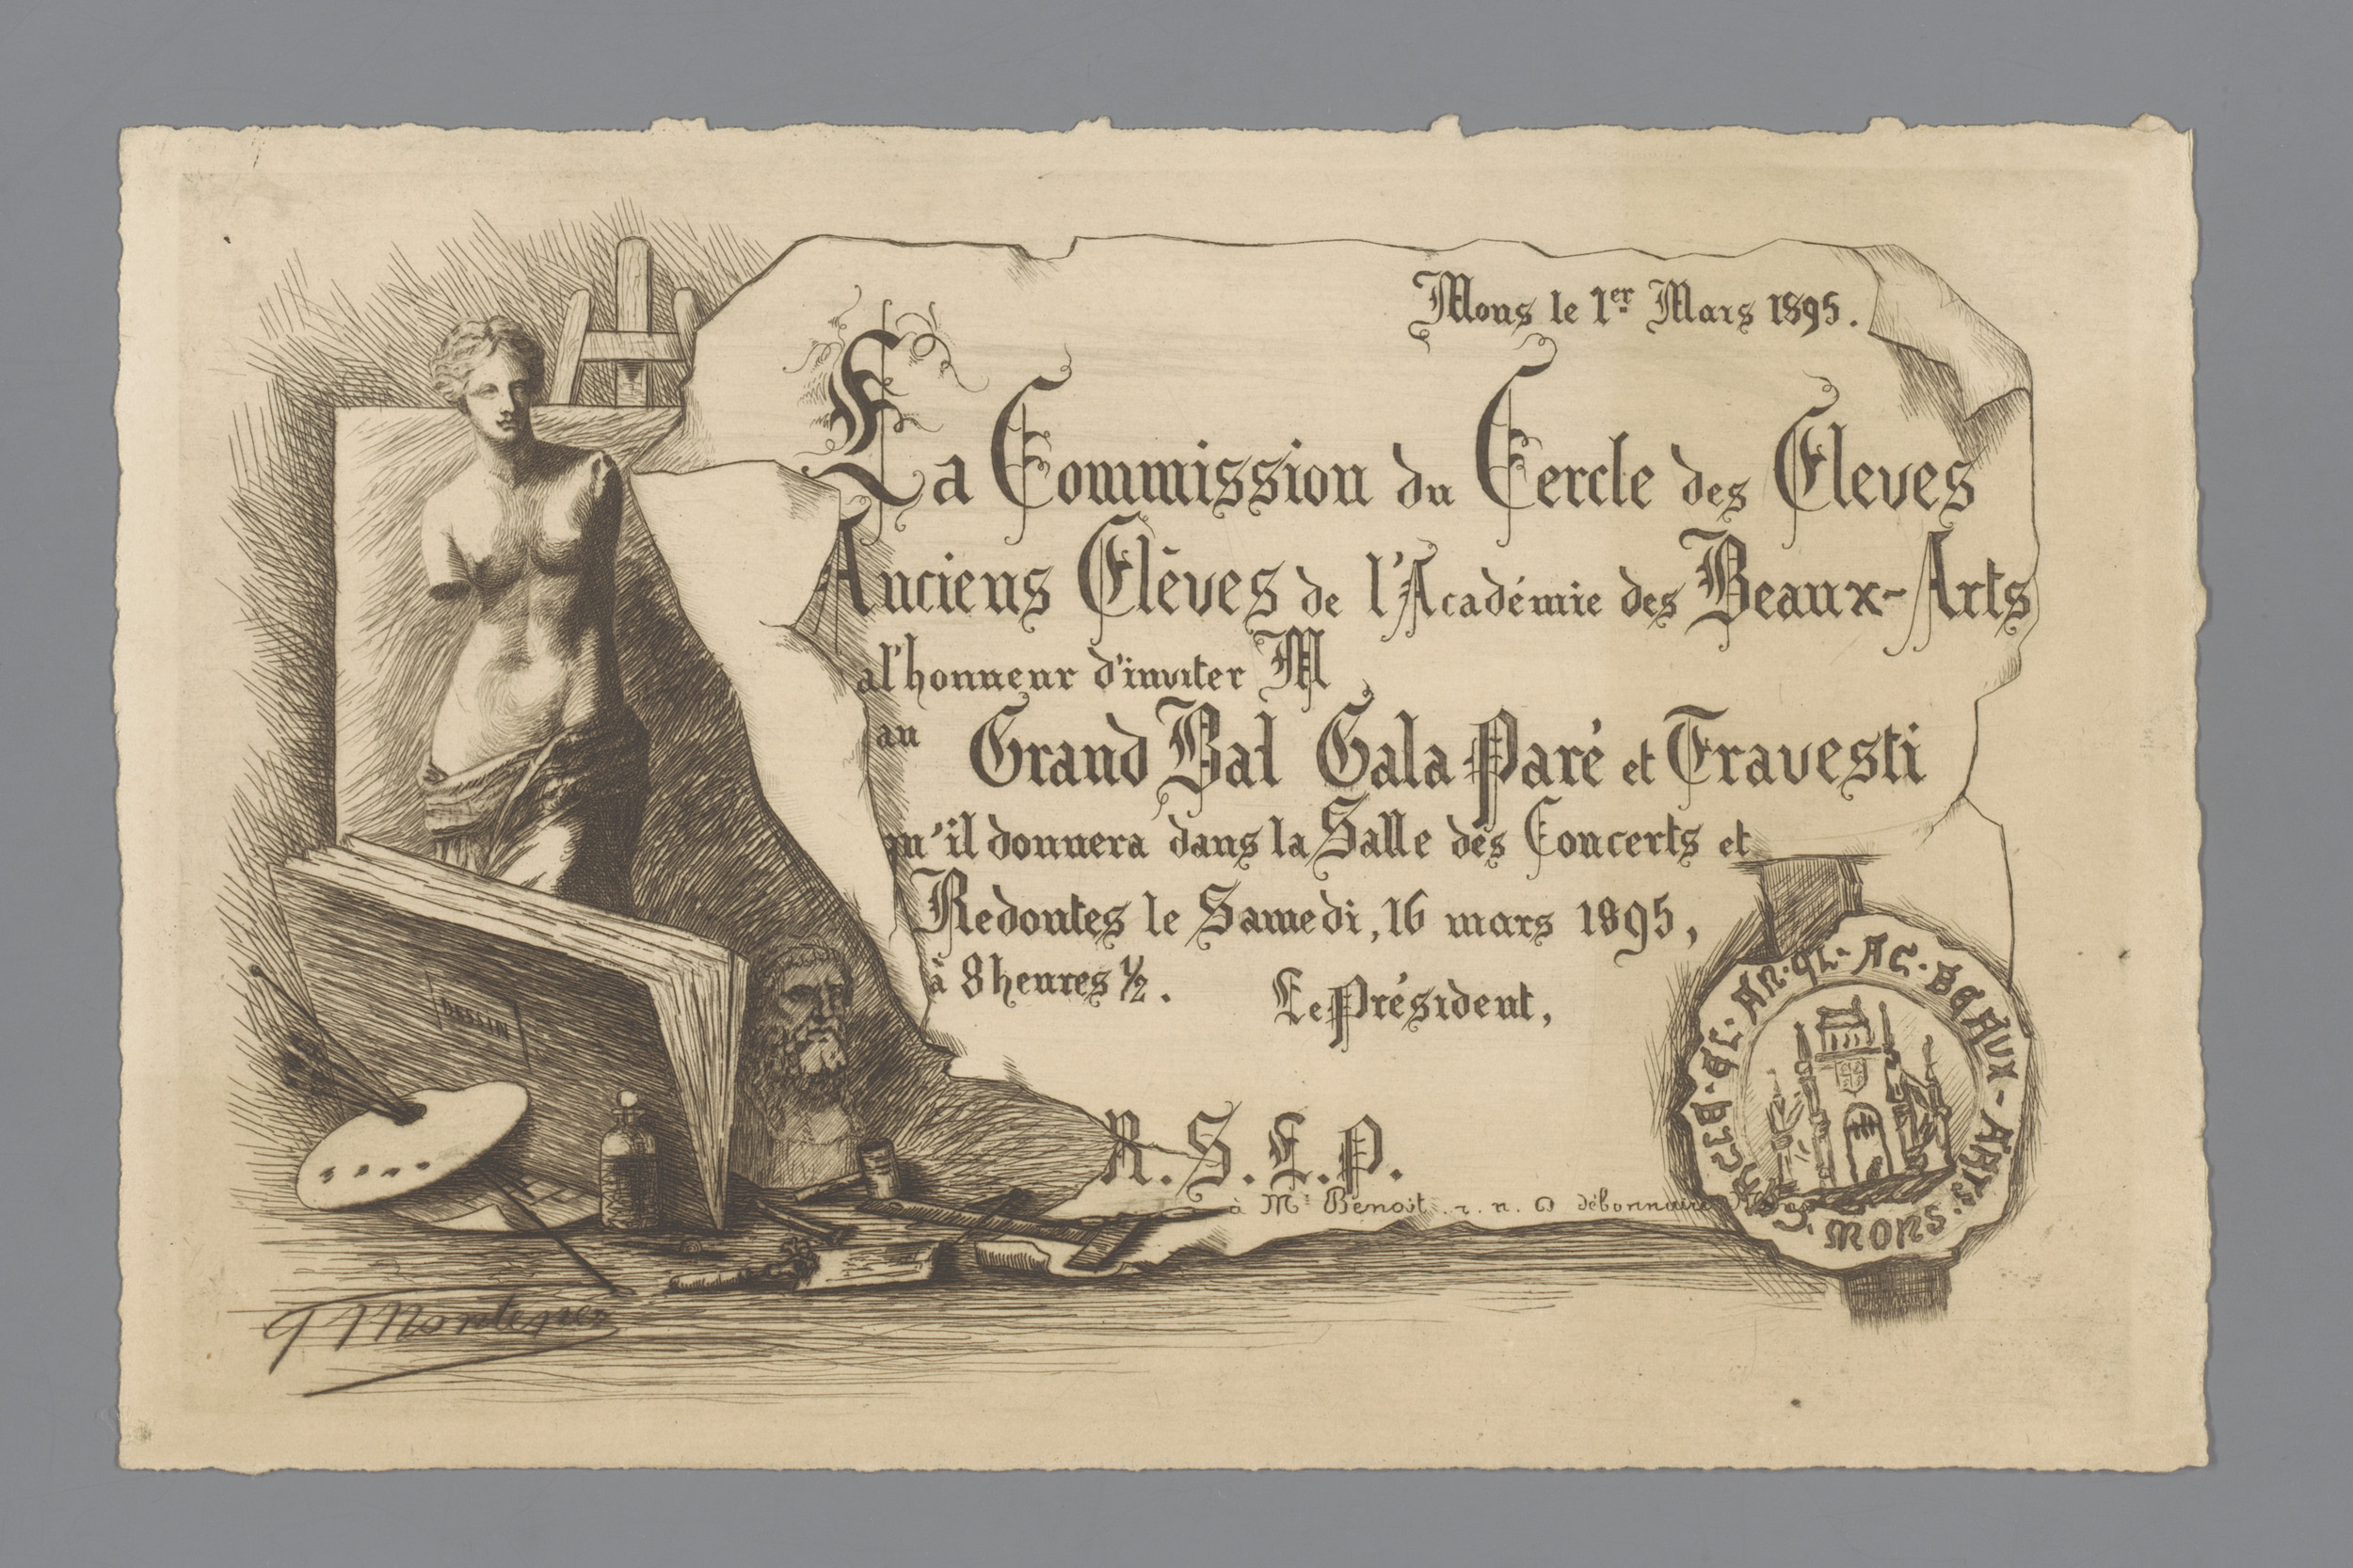 Mons le 1er Mars 1895.
La Commission du Cercle des Eleves
Anciens Elèves de l'Académie des Beaux-Arts
a l'honneur d'inviter M
au Grand Bal Gala Paré et Travesti
qu'il donnera dans la Salle des Concerts et
Redoutes le Samedi, 16 mars 1895,
à 8 heures ½.
Le Président,
R.S.L.P.
à Mr Benoit. r. n. D débonnaire
DESSIN
CERCLE·EL·AN·EL·AC·BEAUX-ARTS·
MONS·